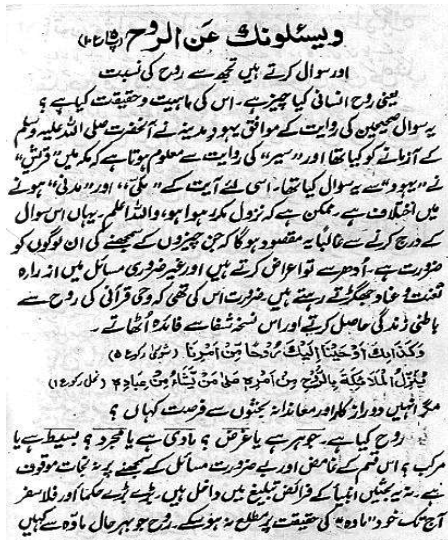 ویسئلونك عن الروح (پ۱۵ ع۱۰)
اور سوال کرتے ہیں تجھ سے روح کی نسبت
یعنی روح انسانی کیا چیز ہے۔ اس کی ماہیت و حقیقت کیا ہے ؟
یہ سوال صحیحین کی روایت کے موافق یہود مدینہ نے آنحضرت صلی اللہ علیہ وسلم
کے آزمانے کو کیا تھا اور "سیر" کی روایت سے معلوم ہوتا ہے کہ مکہ میں "قریش"
نے "یہود" سے یہ سوال کیا تھا۔ اسی لئے آیت کے "مکی" اور "مدنی" ہونے
میں اختلاف ہے۔ ممکن ہے کہ نزول مکرر ہوا ہو، واللہ اعلم۔ یہاں اس سوال
کے درج کرنے سے غالباً یہ مقصود ہوگا کہ جن چیزوں کے سمجھنے کی ان لوگوں کو
ضرورت ہے۔ اُدھر سے تو اعراض کرتے ہیں اور غیر ضروری مسائل میں از راہ
تعنت و عناد جھگڑتے رہتے ہیں۔ ضرورت اس کی تھی کہ وحی قرآنی کی روح سے
باطنی زندگی حاصل کرتے اور اس نسخہ شفا سے فائدہ اُٹھاتے۔
وَكَذٰلِكَ اَوْحَيْنَا اِلَيْكَ رُوْحًا مِّنْ اَمْرِنَا (شوریٰ رکوع ۵)
يُنَزِّلُ الْمَلَائِكَةَ بِالرُّوْحِ مِنْ اَمْرِهٖ عَلٰى مَنْ يَّشَآءُ مِنْ عِبَادِهٖ (نحل رکوع ۱)
مگر انہیں دور از کار اور معاندانہ بحثوں سے فرصت کہاں ؟
روح کیا ہے۔ جوہر ہے یا عرض ؟ مادی ہے یا مجرد ؟ بسیط ہے یا
مرکب ؟ اس قسم کے غامض اور بے ضرورت مسائل کے سمجھنے پر نہ نجات موقوف
ہے۔ نہ یہ بحثیں انبیاء کے فرائض تبلیغ میں داخل ہیں۔ بڑے بڑے حکما اور فلاسفر
آج تک خود "مادہ" کی حقیقت پر مطلع نہ ہو سکے۔ روح جو بہر حال مادہ سے کہیں